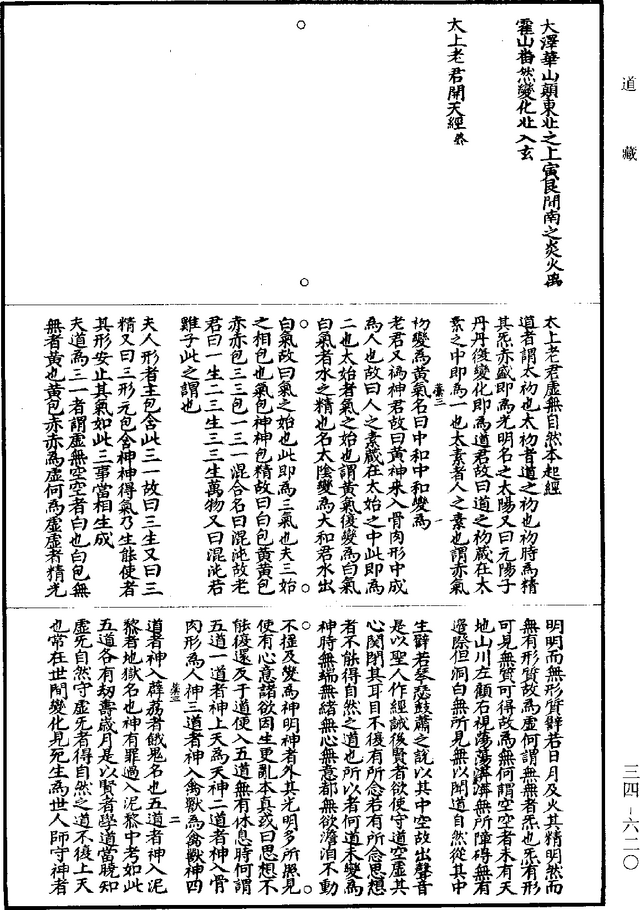 道藏
大澤華山顛東北之上寅艮間南之炎火出
霍山當然變化北入玄
太上老君開天經 終
太上老君虛無自然本起經
道者謂太初也太初者道之初也初時為精
其炁赤盛即為光明名之太陽又曰元陽子
丹丹復變化即為道君故曰道之初藏在太
素之中即為一也太素者人之素也謂赤氣
初變為黃氣名曰中和中和變為
老君又為神君故曰黃神來入骨肉形中成
為人也故曰人之素藏在太始之中此即為
二也太始者氣之始也謂黃氣復變為白氣
白氣者水之精也名太陰變為太和君水出
白氣故曰氣之始也此即為三氣也夫三始
之相包也氣包神神包精故曰白包黃黃包
赤赤包三三包一三一混合名曰混沌故老
君曰一生二二生三三生萬物又曰混沌若
雞子此之謂也
夫人形者主包含此三一故曰三生又曰三
精又曰三形元包含神神得氣乃生能使者
其形安止其氣如此三事當相生成
夫道為三一者謂虛無空空者白也白包無
無者黃也黃包赤赤為虛何為虛虛者精光
明明而無形質辟若日月及火其精明然而
無有形質故為虛何謂無無者炁也炁有形
可見無質可得故為無何謂空空者未有天
地山川左顧右視蕩蕩漭漭無所障礙無有
邊際但洞白無所見無以聞道自然從其中
生辟若琴瑟鼓簫之說以其中空故出聲音
是以聖人作經誡後賢者欲使守道空虛其
心關閉其耳目不復有所念若有所念思想
者不能得自然之道也所以者何道未變為
神時無端無緒無心無意都無欲澹泊不動
不搖及變為神明神者外其光明多所照見
使有心意諸欲因生更亂本真或曰思想不
能復還反于道便入五道無有休息時何謂
五道一道者神上天為天神二道者神入骨
肉形為人神三道者神入禽獸為禽獸神四
道者神入薜荔者餓鬼名也五道者神入泥
黎者地獄名也神有罪過入泥黎中考如此
五道各有劫壽歲月是以賢者學道當曉知
虛無自然守虛無者得自然之道不復上天
也常在世間變化見死生為世人師守神者
三四-六二〇